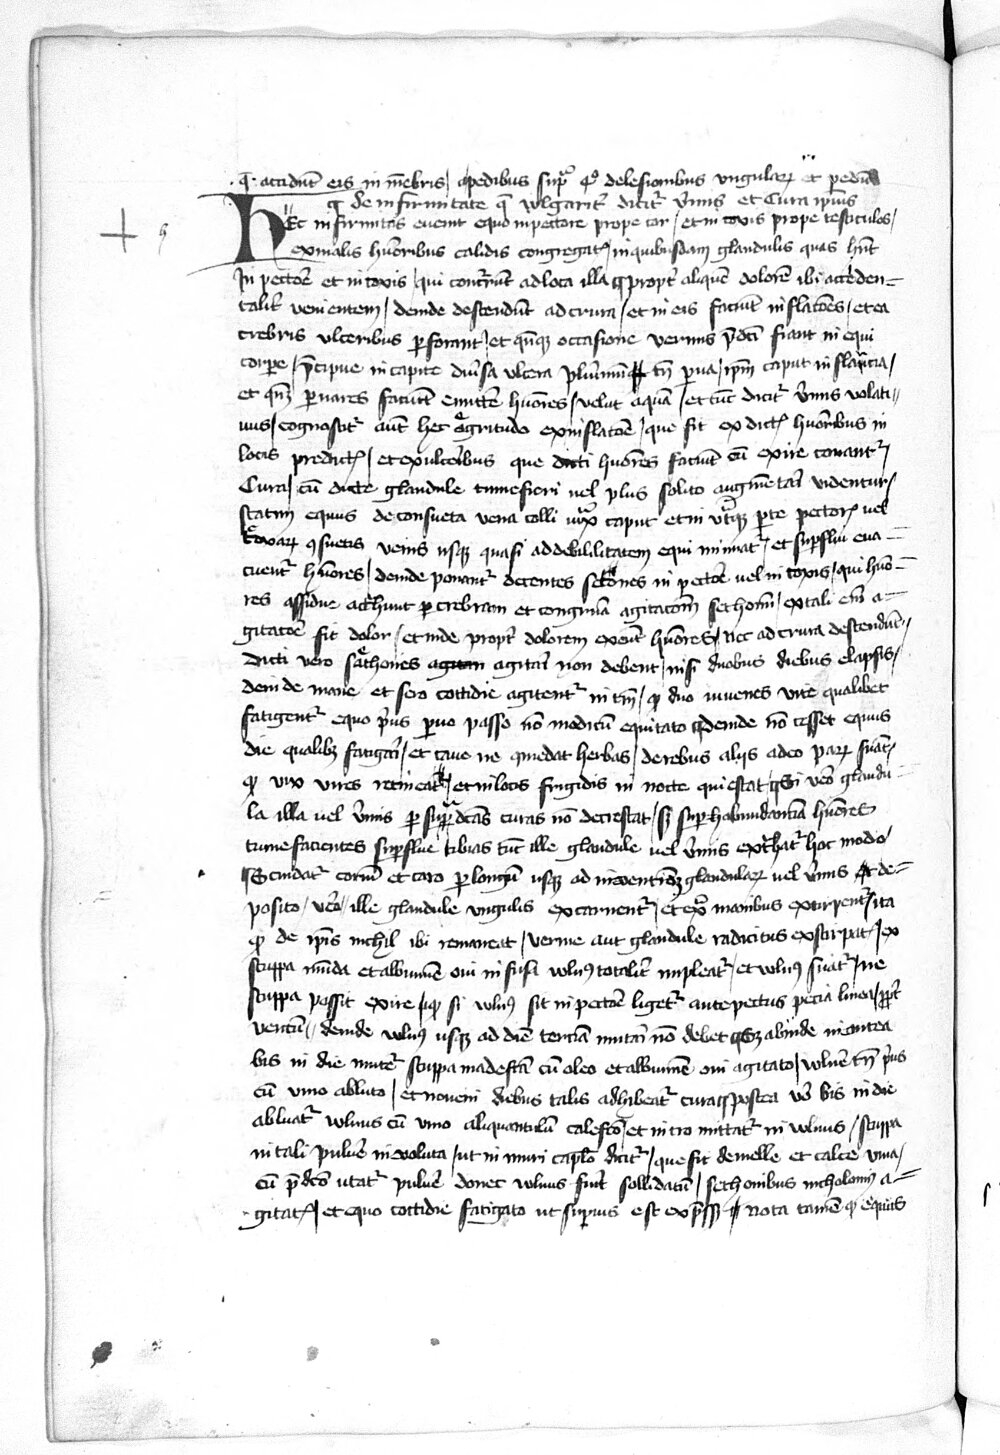 q̄ accidūt eis in mēbris / a pedibus supͥ qͥ de lesionibus ungularꝝ et pedum
q de infirmitate q̄ vulgarit᷑ dicit᷑ v̄mis et Cura ipīus
Hec infirmitas evenit equo in pectore prope cor / et in coxis prope testiculos /
ex malis hūoribus calidis congregatꝭ / in quibusdam glandulis quas hn̄t
In pectoē et in coxis / qui concurrūt ad loca illa propt᷑ aliquē dolorē ibi acciden=
talit᷑ venientem / deinde descendūt ad crura / et in eis faciūt inflacōes / et ea
crebris ulceribus ꝑforant / et qn̄qꝫ occasione vermis p̄dc̄i fiunt in equi
corꝑe / p̄cipue in capite div̄sa ulcera plurimū tn̄ ꝑva / ip̄m caput inflancia /
et qn̄qꝫ ꝑ nares faciūt emitt̄e hūores / velut aquā / et tūc dicit᷑ v̄mis volati=
vus / cognoscit᷑ aūt hec egritudo ex inflacōe / que fit ex dictꝭ hūoribus in
locis predictꝭ / et ex ulc̄ibus que dicti hūores faciūt cū exire conant᷑ /
Cura / cū dicte glandule tumefieri vel plus solito augmētari videntur /
statim equus de consueta vena colli iuxͣ caput et in utͣqꝫ ꝑte pectorꝭ vel
coxarꝝ ꝯsuetis venis usqꝫ quasi ad debilitatem equi minuat᷑ / et suꝑflui eva=
cuent᷑ hūores / deinde ponant᷑ decentes setones in pectoē vel in coxis / qui hūo=
res assidue atͣhunt ꝑ crebram et congruā agitacōem sethonū / ex tali enī a=
gitacōe fit dolor / et inde propt᷑ dolorem exeūt hūores / nec ad crura descendūt /
Dicti vero sethones agitari non debent / nisi duobus diebus elapsis /
deinde mane et sero cottidie agitent᷑ in tm̄ / ꝙ duo iuvenes vice qualibet
fatigent᷑ equo p̄us ꝑvo passo nō modicū equitato deinde nō cesset equus
die qualibꝫ fatigari / et cave ne ꝯmedat herbas / de rebus aliis adeo parꝝ sumat
ꝙ vix vires retineat / et in locis frigidis in nocte quiescat Si vēo glandu=
la illa vel v̄mis ꝑ supͣdcās curas nō decrescat / sꝫ suꝑhabundanciā hūores
tumefacientes suꝑflue tibias tūc ille glandule vel v̄mis extͣhat᷑ hoc modo /
Scindat᷑ coriū et caro ꝑ longū usqꝫ ad invencionē glandularꝝ vel v̄mis de=
posito / vēo / ille glandule ungulis excarnent᷑ / et exͣ manibus extirpent᷑ / ita
ꝙ de ip̄is nichil ibi remaneat / verme aut glandule radicitus exstirpat᷑ / ex
stuppa mūda et albumīe ovi infusa vulnus totalit᷑ impleat᷑ / et vulnus suat᷑ / ne
stuppa possit exire / ꝙ si vulnus sit in pectoē liget᷑ ante pectus pecia linea / ꝓpt᷑
ventū / deinde vulnus usqꝫ ad diē terciā mutari nō debet Sꝫ abinde in antea
bis in die mutet᷑ stuppa madefcā cū oleo et albumīe ovi agitato / vulnēe tn̄ p̄us
cū vino abluto / et novem diebus talis adhibeat᷑ cura postea vēo bis in die
abluat᷑ vulnus cū vino aliquantulū calefcō / et intromittat᷑ in vulnus / stuppa
in tali pulvēe involuta / ut in muri caplo dicit᷑ / que fit de melle et calce viva /
cū p̄dcō utat᷑ pulvēe donec vulnus fuīt sollidatū / sethonibus nicholomin᷑ a=
gitatꝭ / et equo cottidie fatigato ut suꝑius est exp̄ssꝫ Nota tamē ꝙ equus